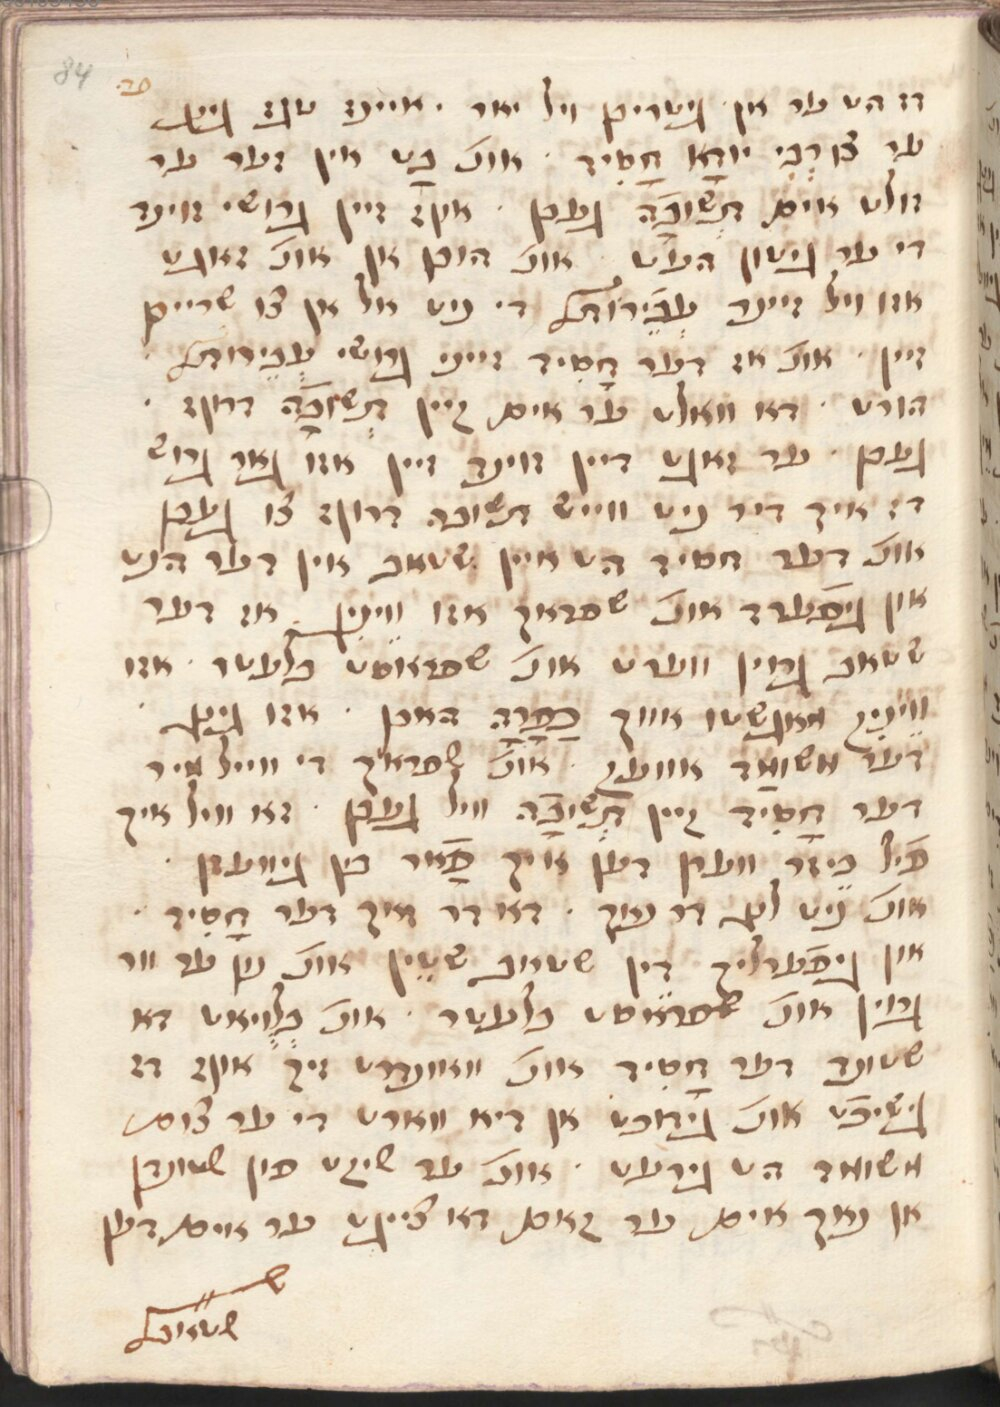 84 פה
דז הט ער אן גיטריבן וויל יאר . איינז טגז גינג
ער צו רְבִי יודָא חָסִיד . אונ' בַט אין דער ער
זולט אים תְּשׁוּבָה געבן . אונ' זיין גרושי זוינד
די ער גיטון העט . אונ' הובן אן אונ' זאגט
אזו וויל זיינר עֲבֵירוֹת די ניט אל אן צו שרייבן
זיין . אונ' אז דער חָסִיד זייני גרושי עֲבֵירות
הורט . דא וואלט ער אים קיין תְּשׁוּבָה דרויף .
געבן . ער זאגט דיין זוינד זיין אזו גאר גרוש
דז איך דיר ניט ווייש תשובה דרויף צו געבן
אונ' דער חסיד הט איין שטאב אין דער הנט
אונ' שפראך אזו וויניג אז דער
שטאב גרוין ווערט אונ' שפראסט בלעטר . אזו
וויניג מאגשטו אויך כַּפָּרָה האבן . אזו גינג .
דער משומָד אוועק . אונ' שפראך די ווייל מיר
דער חָסִיד קיין תְּשׁוּבָה וויל געבן . דא וויל איך
פֿיל ביזר ווערן דען איך פֿאר בין גיוועזן .
אונ' ניט לנג דר נאך . דא דר זאך דער חָסִיד .
דין שטאב שטין אונ' ער וור
גרוין אונ' שפראסט בלעטר . אונ' בְּלִויאט דא
שטונד דער חָסִיד אונ' וואונדרט זיך אונ' דז
גישיכט אונ' גידוכט אן דיא ווארט די ער צום
משומד הט גירעט . אונ' ער שיקט פון שטונדן
אן נאך אים ער קאם דא צייגט ער אים דען
שטאב